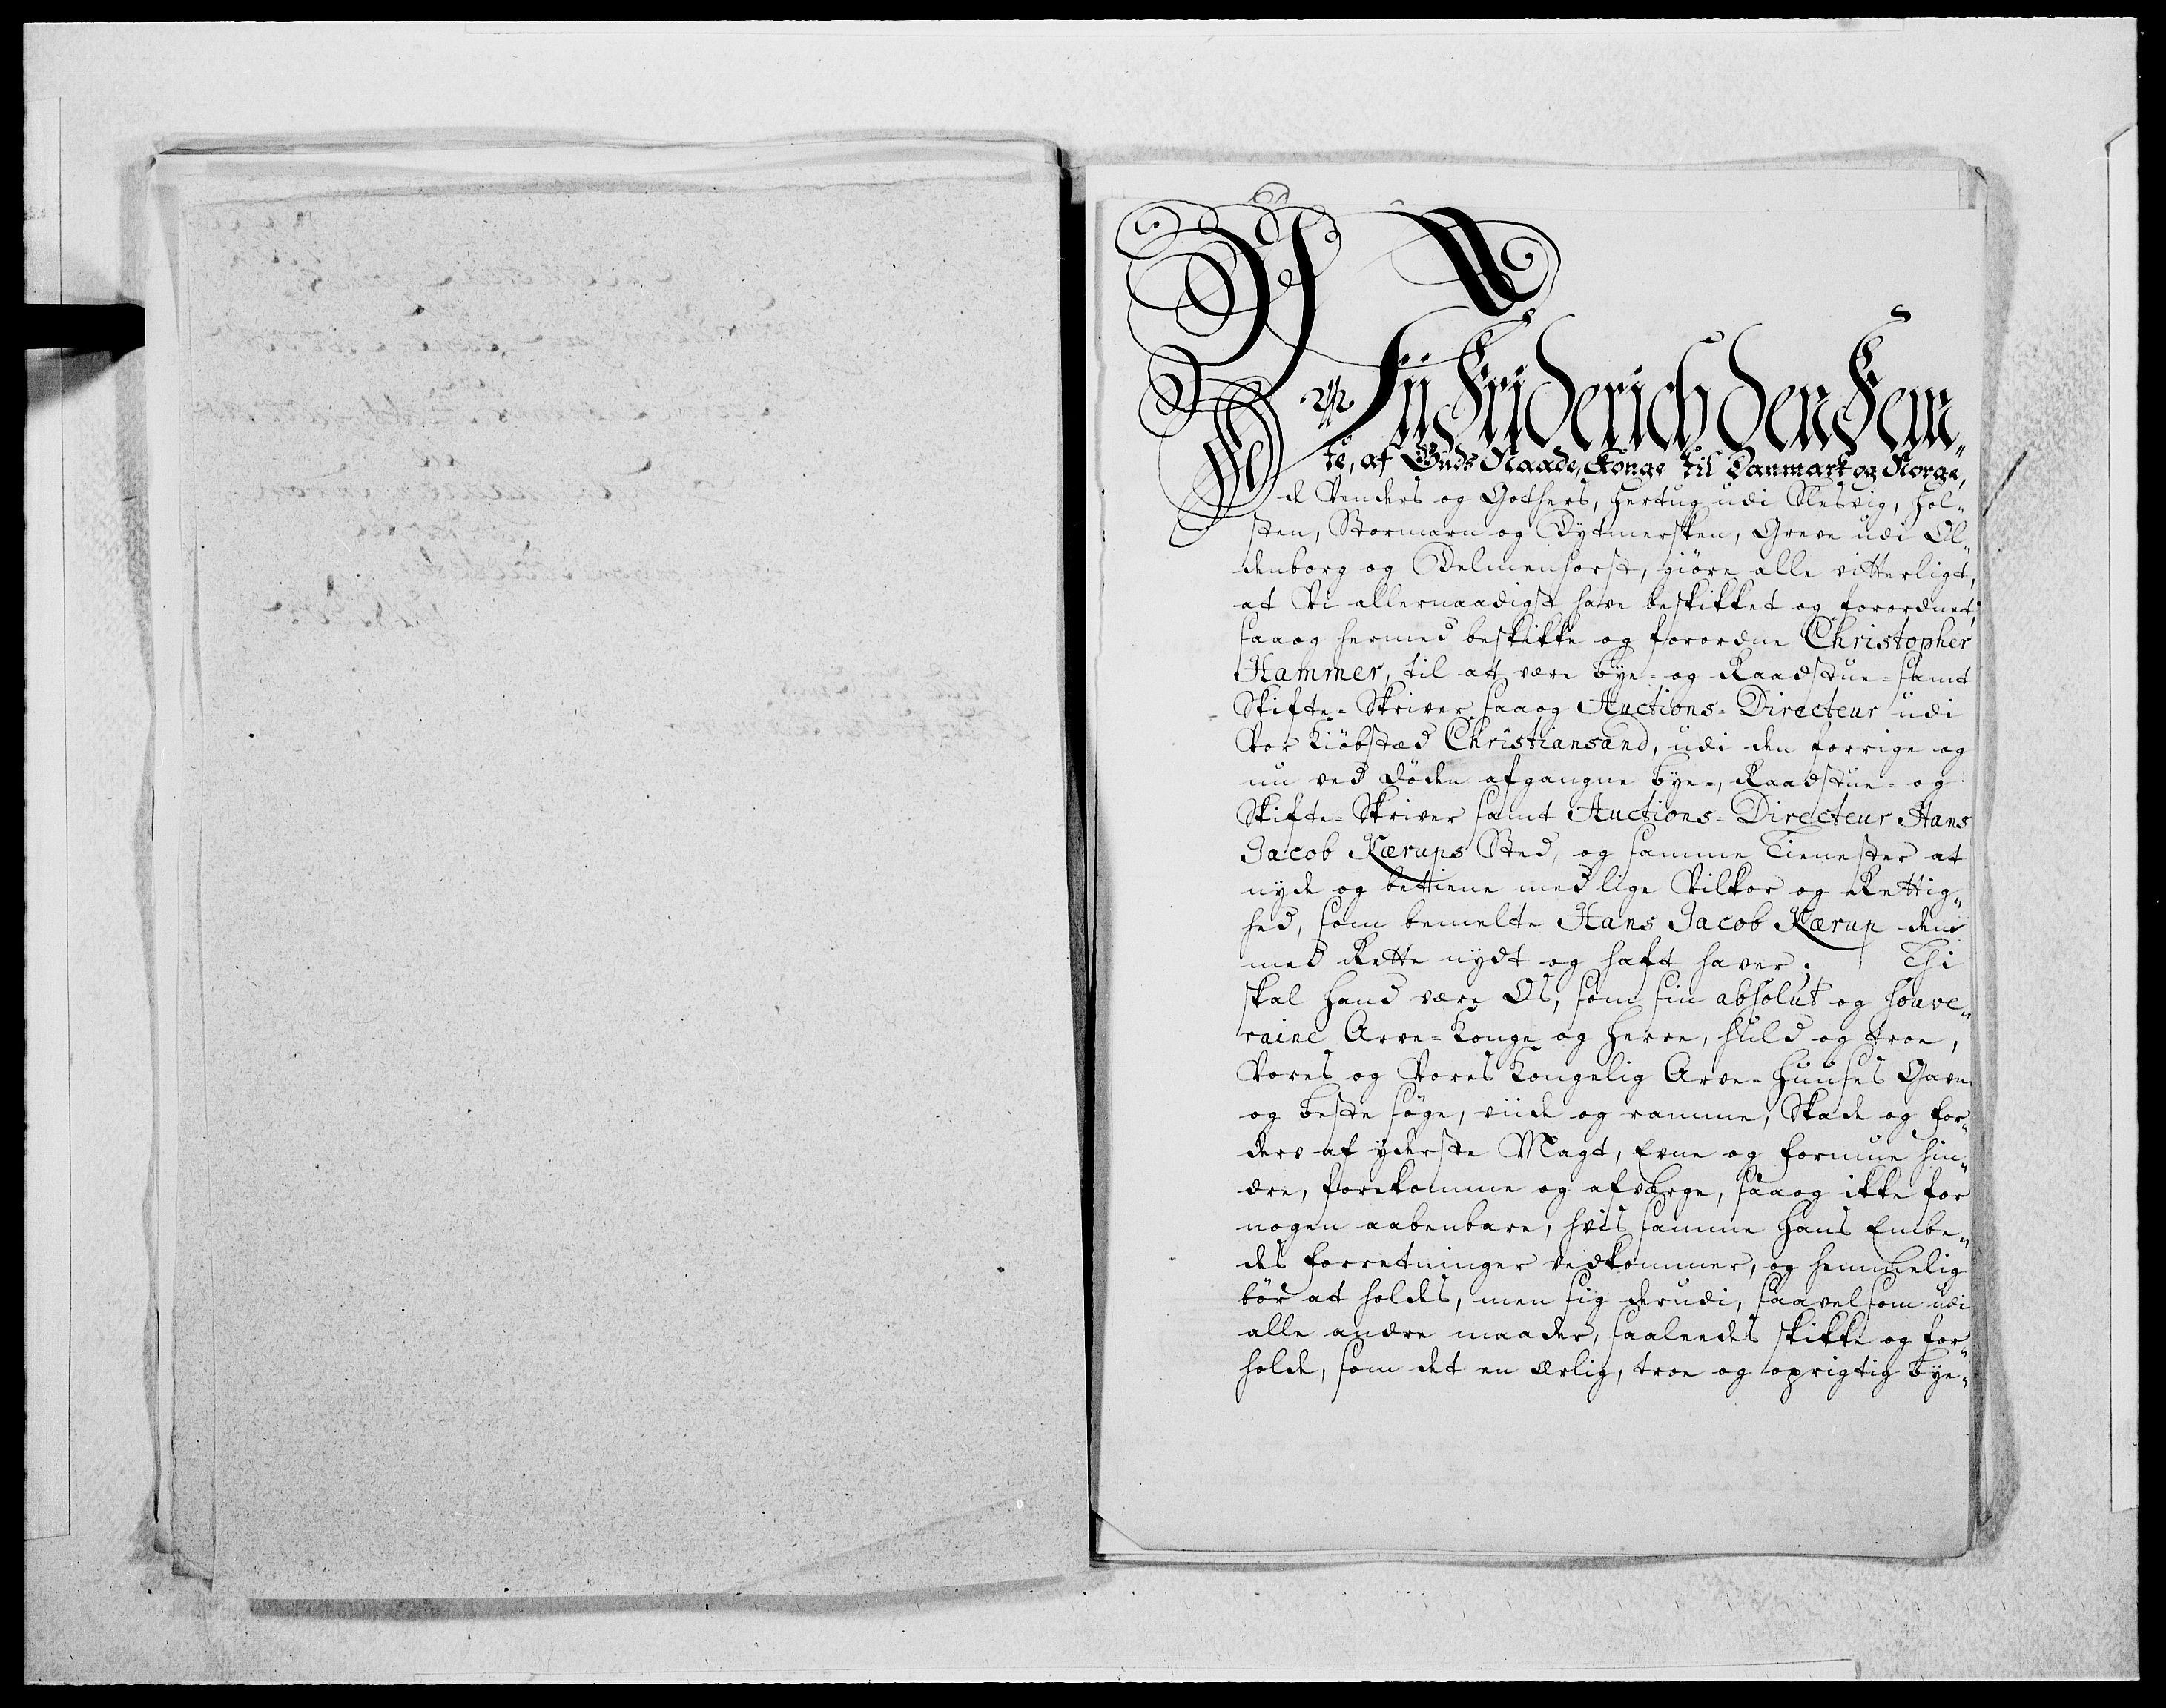 Vii Friderich den Fem„
te, af Guds Naade, Konge til Danmark og Norge,
de Venders og Gothers, Hertug udi Slesvig, Hol„
sten, Stormarn og Dytmersken, Greve udi Ol„
denborg og Delmenhorst, giöre alle vitterligt,
at Vi allernaadigst have beskikket og forordnet,
saaog hermed beskikke og forordne Christopher
Hammer, til at være Bye- og Raadstue- samt
Skifte- Skriver saaog Auctions- Directeur udi
Vor Kiöbstæd Christiansand, udi den forrige og
nu ved Döden afgangne Bye-, Raadstue- og
Skifte- Skriver samt Auctions- Directeur Hans
Jacob Kærups Sted, og samme Tienester at
nyde og bettiene med lige Vilkor og Rettig„
hed, som bemelte Hans Jacob Kærup dem
med Rette nydt og haft haver. Thi
skal Hand være Os, som sin absolut og souve„
raine Arve-Konge og Herre, huld og troe,
Vores og Vores Kongelig Arve-Huuses Gavn
og beste söge, viide og ramme, Skade og For„
derv af yderste Magt, Evne og Formue hin„
dre, forekomme og afværge, saaog ikke for
nogen aabenbare, hvis samme Hans Embe„
des Forretninger vedkommer, og hemmelig
bör at holdes, men sig derudi, saavelsom udi
alle andre maader, saaleedes skikke og for„
holde, som det en ærlig, troe og oprigtig Bye„